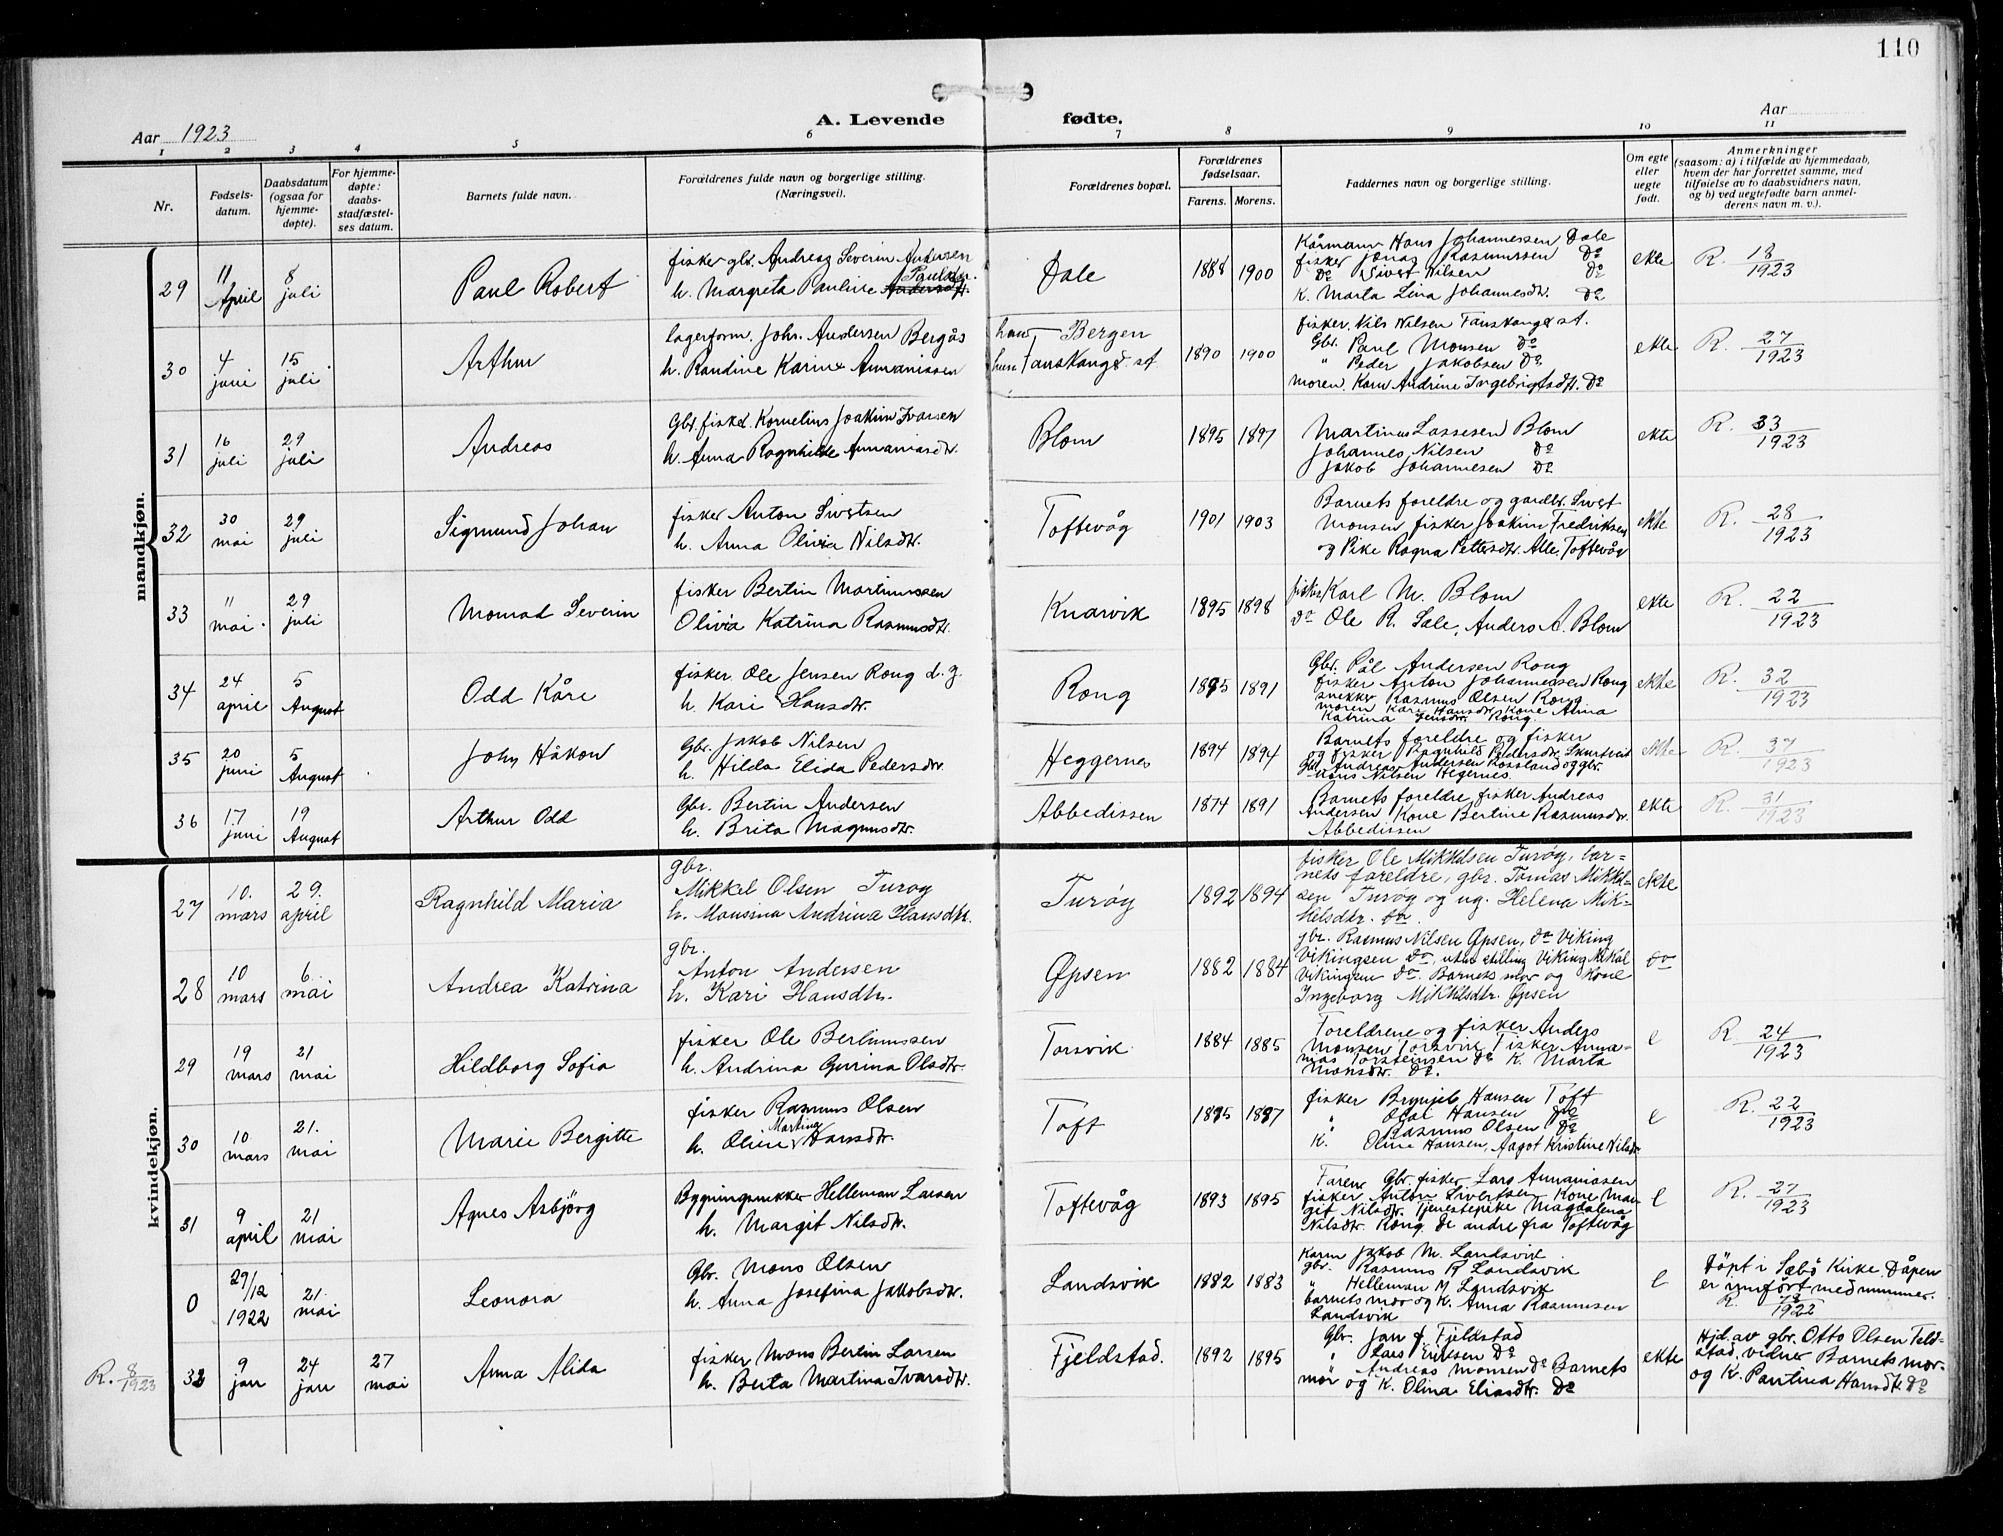 110
Aar 1923
A. Levende fødte.
Aar
1 2 3 4 5 6 7 8 9 10 11
Nr.
Fødsels-
datum.
Daabsdatum
(ogsaa for
hjemme-
døpte).
For hjemme-
døpte:
daabs-
stadfæstel-
ses datum.
Barnets fulde navn.
Forældrenes fulde navn og borgerlige stilling.
(Næringsvei).
Forældrenes bopæl.
Forældrenes
fødselsaar.
Farens. Morens.
Faddernes navn og borgerlige stilling.
Om egte
eller
uegte
født.
Anmerkninger
(saasom: a) i tilfælde av hjemmedaab,
hvem der har forrettet samme, med
tilføielse av to daabsvidners navn,
og b) ved uegtefødte barn anmel-
derens navn m. v.).
mandkjøn.
29
11 April
8 juli
Paul Robert
fisker gbr. Andreas Severin Andersen
h. Margreta Pauline Paulsdtr.
Dale
1888 1900
Kårmann Hans Johannessen Dale
fisker Jonas Rasmussen Do
Do Sivert Nilsen Do
K. Marta Lina Johannesdtr. Do
ekte
R. 18/1923
30
4 juni
15 juli
Arthur
lagerform. Johs. Andersen Bergås
h. Randine Karine Annanissen
han Bergen
hun Fanskanger st
1890 1900
fisker Nils Nilsen Fanskanger st.
Gbr. Paul Monsen Do
" Peder Jakobsen Do
moren. Kone Andrine Ingebrigtsdt. Do
ekte
R. 27/1923
31
16 juli
29 juli
Andreas
Gbr. fisker Kornelius Joakim Ivarsen
h. Anna Ragnhilde Annaniasdtr.
Blom
1895 1897
Martinus Lassesen Blom
Johannes Nilsen Do
Jakob Johannesen Do
ekte
R. 33/1923
32
30 mai
29 juli
Sigmund Johan
fisker Anton Sivertsen
h. Anna Olivia Nilsdtr.
Toftevåg
1901 1903
Barnets foreldre og gardbr. Sivert
Monsen fisker Joakim Fredriksen
og Pike Ragna Pettersdtr. Alle Toftevåg
ekte
R. 28/1923
33
11 mai
29 juli
Monrad Severin
fisker Bertin Martinussen
Olivia Katrina Rasmusdtr.
Knarvik
1895 1898
fisker Karl M. Blom
Do Ole R. Sale, Anders A. Blom
ekte
R. 22/1923
34
24 april
5 August
Odd Kåre
fisker Ole Jensen Rong d.y.
h. Kari Hansdtr.
Rong
1895 1891
Gbr. Pål Andersen Rong
fisker Anton Johannessen Rong
snekker Rasmus Olsen Rong
moren Kari Hansdtr Kone Anna
Katrina Jensdtr. Rong.
ekte
R. 32/1923
35
20 juni
5 August
John Håkon
Gbr. Jakob Nilsen
h. Hilda Elida Pedersdtr
Heggernes
1894 1894
Barnets foreldre og fisker
og fisker Ragnhild Pedersdtr Skurtveit
Gbr Andreas Andersen Rossland og gbr.
Hans Nilsen Hegernes.
ekte
R. 37/1923
36
17 juni
19 August
Arthur Odd
Gbr. Bertin Andersen
h. Brita Magnusdtr.
Abbedissen
1874 1891
Barnets foreldre, fisker Andreas
Andersen Kone Bertine Rasmusdtr.
Abbedissen
ekte
R. 31/1923
kvindekjøn.
27
10. mars
29. april
Ragnhild Maria
gbr.
Mikkel Olsen Turøy
h. Monsina Andrina Hansdtr.
Turøy
1892 1894
fisker Ole Mikkelsen Turøy, bar=
nets foreldre, gbr. Tomas Mikkel=
sen Turøy og ug. Helena Mik=
kelsdtr. do.
ekte
28
10 mars
6. mai
Andrea Katrina
gbr.
Anton Andersen
h. Kari Hansdtr.
Øpsen
1882 1884
gbr. Rasmus Nilsen Øpsen, do Viking
Vikingsen do, uten stilling Viking Mikal
Vikingsen do. Barnets mor og Kone
Ingeborg Mikkelsdtr. Øpsen
do
29
19 mars
21 mai
Hildborg Sofia
fisker Ole Bertinussen
h. Andrina Gurina Olsdtr.
Torsvik
1884 1885
Foreldrene og fisker Anders
Monsen Torsvik Fisker Anna=
nias Torsteinsen do K. Marta
Monsdtr. Do.
e
R. 24/1923
30
10. mars
21. mai
Marie Bergitte
fisker Rasmus Olsen
h. Oline Martina Hansdtr.
Toft
1885 1887
fisker Brynjel Hansen Toft
" Olai Hansen Do
" Rasmus Olsen Do
K. Oline Hansen, Aagot Kristine Nilsdtr
e
R. 22/1923
31
9 april
21 mai
Agnes Asbjörg
Bygningsnekker Helleman Larsen
h. Margit Nilsdtr.
Toftevåg
1893 1895
Faren Gbr. fisker Lars Annanissen
fisker Anton Sivertsen Kone Mar-
git Nilsdtr. Tjenestepike Magdalena
Nilsdtr. Rong De andre fra Toftevåg
e
R. 27/1923
0
29/12 1922
21. mai
Leonora
Gbr. Mons Olsen
h. Anna Josefina Jakobsdtr.
Landsvik
1882 1883
Kårm Jakob M. Landsvik
gbr. Rasmus R Landsvik
" Helleman M. Landsvik
barnets mor og K. Anna Rasmussen
Landsvik
e
Döpt i Sæbö Kirke Dåpen
er innfört med nummer.
R. /1922
R. 8/1923
32
9 jan
24 jan
27 mai
Anna Alida
fisker Mons Bertin Larsen
h. Berta Martina Ivarsdtr.
Fjeldstad.
1892 1895
Gbr. Jan J. Fjeldstad
" Lars Eriksen Do
" Andreas Monsen do Barnets
mor og K. Olina Eliasdtr. Do
ekte
Hjd. av gbr. Otto Olsen Feld-
stad, vidner Barnets mor-
og K. Paulina Hansdt. Do